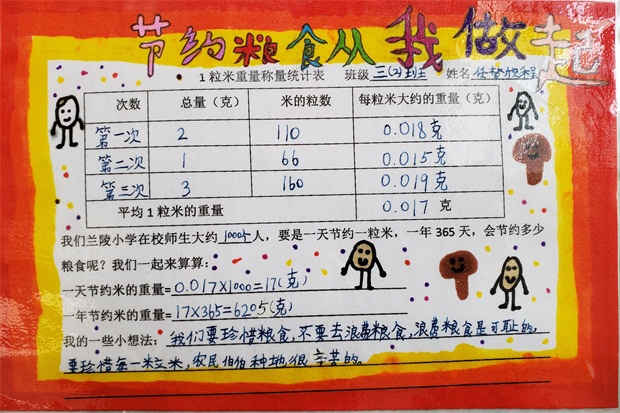 节约粮食从我做起
1粒米重量称量统计表 班级 三(2)班 姓名
次数 总量（克） 米的粒数 每粒米大约的重量（克）
第一次 2 110 0.018克
第二次 1 66 0.015克
第三次 3 160 0.019克
平均1粒米的重量 0.017 克
我们兰陵小学在校师生大约 1000个 人，要是一天节约一粒米，一年 365 天，会节约多少
粮食呢？我们一起来算算：
一天节约米的重量=0.017×1000=17(克)
一年节约米的重量=17×365=6205(克)
我的一些小想法：我们要珍惜粮食，不要去浪费粮食，浪费粮食是可耻的。
要珍惜每一米立米，农民伯伯种地很辛苦的。